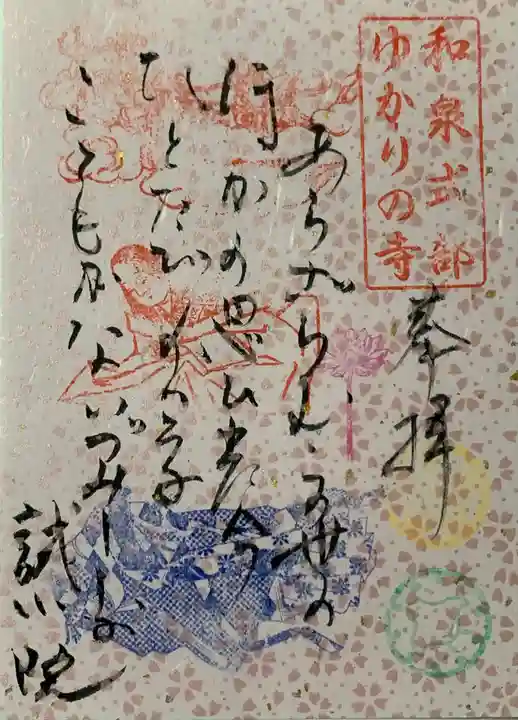 和泉式部
ゆかりの寺
奉拝
あらざらむこの世の
ほかの思ひ出に今
ひとたびのあふ
こともがないづみしきぶ
誠心院